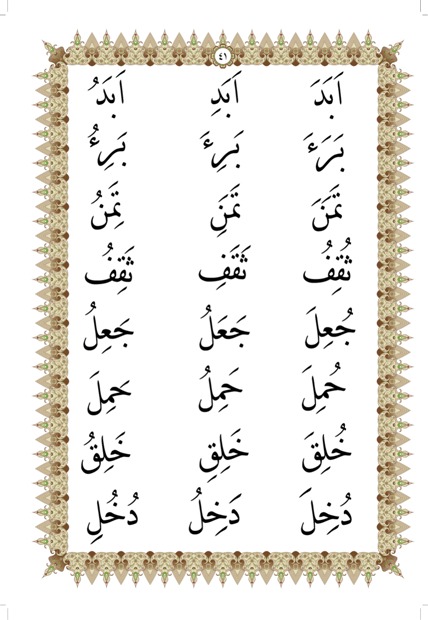 ٤١
اَبَدَ اَبَدِ اَبَدُ
بَرَءَ بَرِءَ بَرِءُ
تَمَنَ تَمَنِ تِمَنُ
ثُقِفُ ثَقَفِ ثَقِفُ
جُعِلَ جَعَلُ جَعِلُ
حُمِلَ حَمِلُ حَمِلَ
خُلِقَ خَلِقِ خَلِقُ
دُخِلَ دَخِلُ دُخُلِ